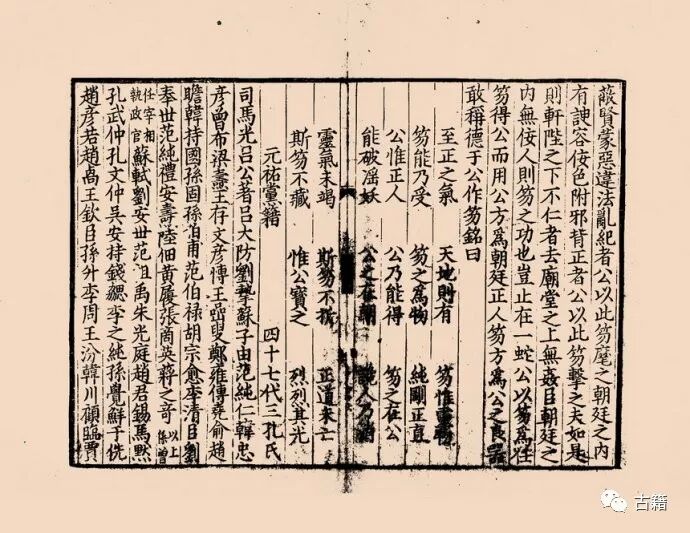 蔽賢蒙惡違法亂紀者公以此笏麾之朝廷之內
有諛容佞色附邪背正者公以此笏擊之夫如是
則軒陛之下不仁者去廟堂之上無姦臣朝廷之
內無佞人則笏之功也豈止在一蛇公以笏為任
笏得公而用公方為朝廷正人笏方為公之良器
敢稱德于公作笏銘曰
至正之氣 天地則有 笏惟靈物
笏能乃受 笏之為物 純剛正直
公惟正人 公乃能得 笏之在公
能破滛妖 公之在朝 讒人乃消
靈氣未竭 斯笏不折 正道未亡
斯笏不藏 惟公寶之 烈烈其光
元祐黨籍 四十七代三孔氏
司馬光呂公著呂大防劉摯蘇子由范純仁韓忠
彥曾布梁燾王存文彥傅王喦叟鄭雍傳堯俞趙
瞻韓持國孫固孫伯甫范伯禄胡宗愈李清臣劉
奉世范純禮安燾陸佃黃履張商英蔣之奇以上係曾
任宰相執政官蘇軾劉安世范祖禹朱光庭趙君錫馬默
孔武仲孔文仲吳安持錢勰李之純孫覺鮮于侁
趙彥若趙卨王欽臣孫升李周王汾韓川顧臨賈
古籍